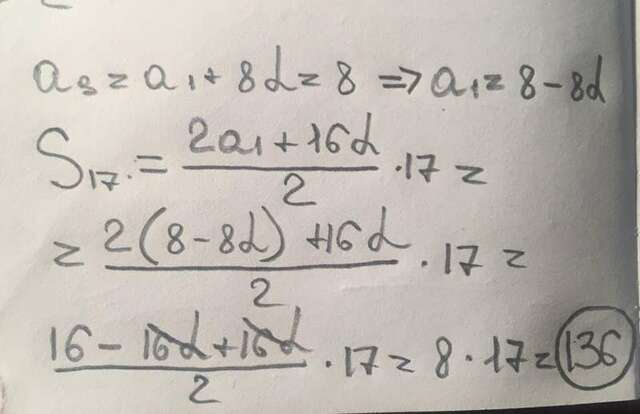 a₉ = a₁ + 8d = 8 => a₁ = 8 - 8d
S₁₇ = (2a₁ + 16d)/2 · 17 =
= (2(8 - 8d) + 16d)/2 · 17 =
(16 - 16d + 16d)/2 · 17 = 8 · 17 = 136